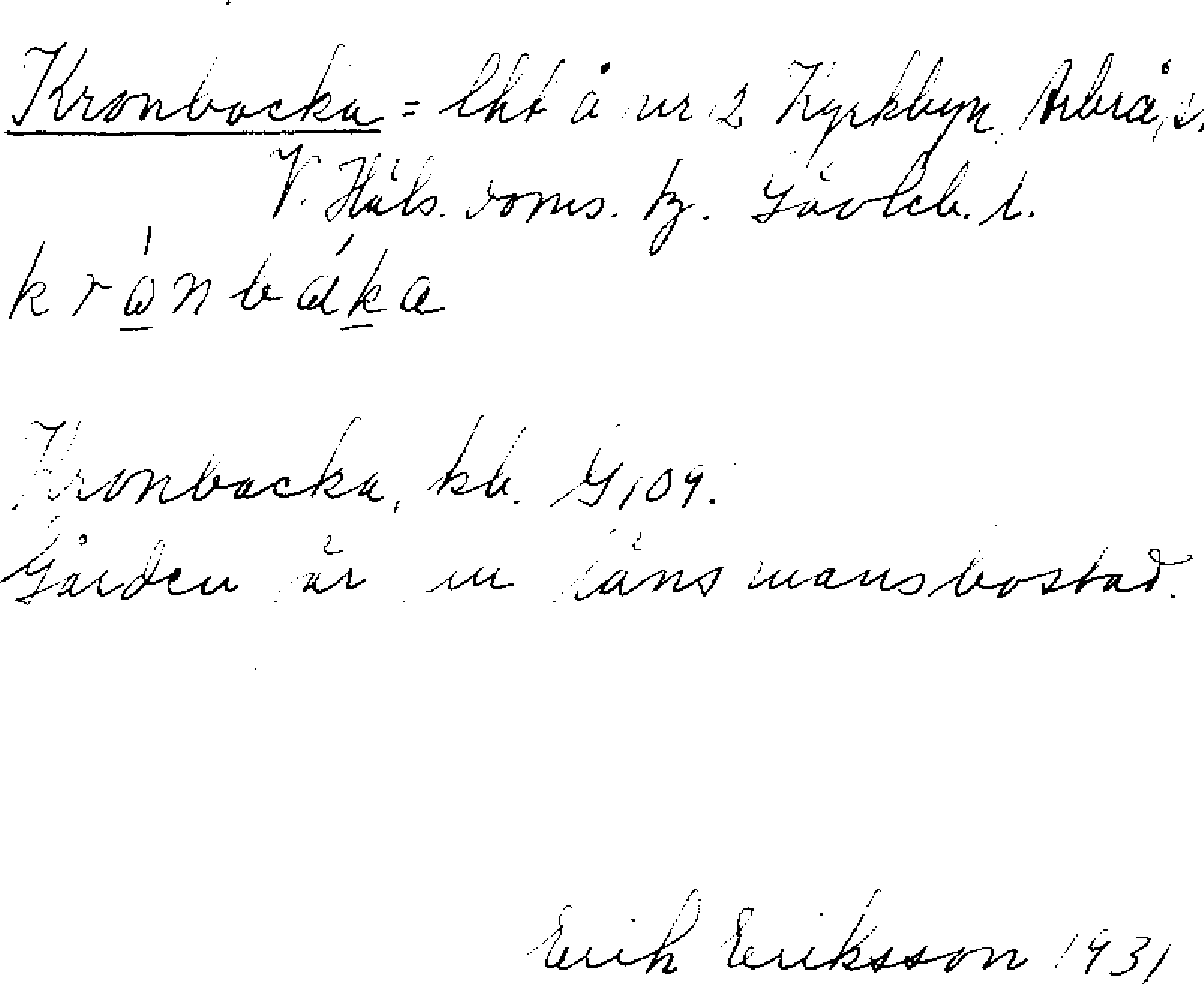 Kronbacka = lht å nr 2 Kyrkbyn, Arbrå, sn
V. Häls. doms. tg. Gävleb. l.
krònbáka
Kronbacka, kb. G, 09.
Gården är en länsmansbostad.
Erik Eriksson 1931